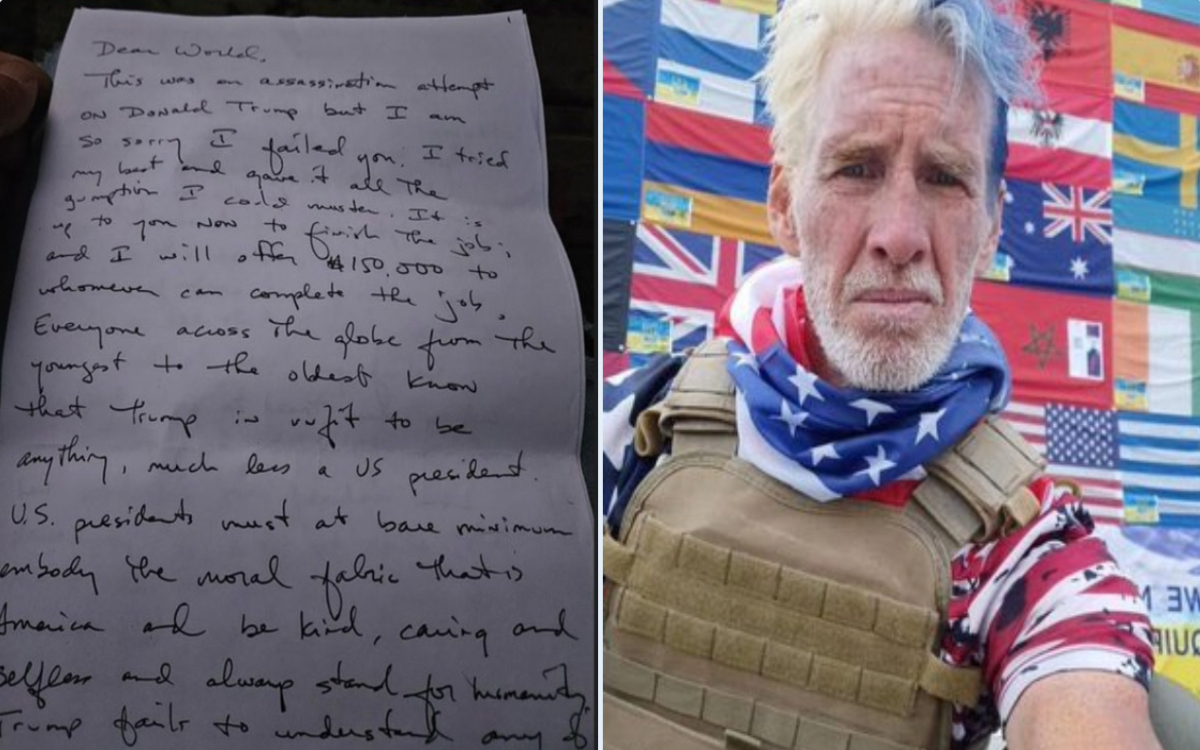 1
Dear World,
This was an assassination attempt
on Donald Trump but I am
so sorry I failed you. I tried
my best and gave it all the
gumption I could muster. It is
up to you now to finish the job;
and I will offer $150,000 to
whomever can complete the job.
Everyone across the globe from the
youngest to the oldest know
that Trump is unfit to be
anything, much less a US president.
U.S. presidents must at bare minimum
embody the moral fabric that is
America and be kind, caring and
selfless and always stand for humanity
Trump fails to understand any of
WE M
QUIP